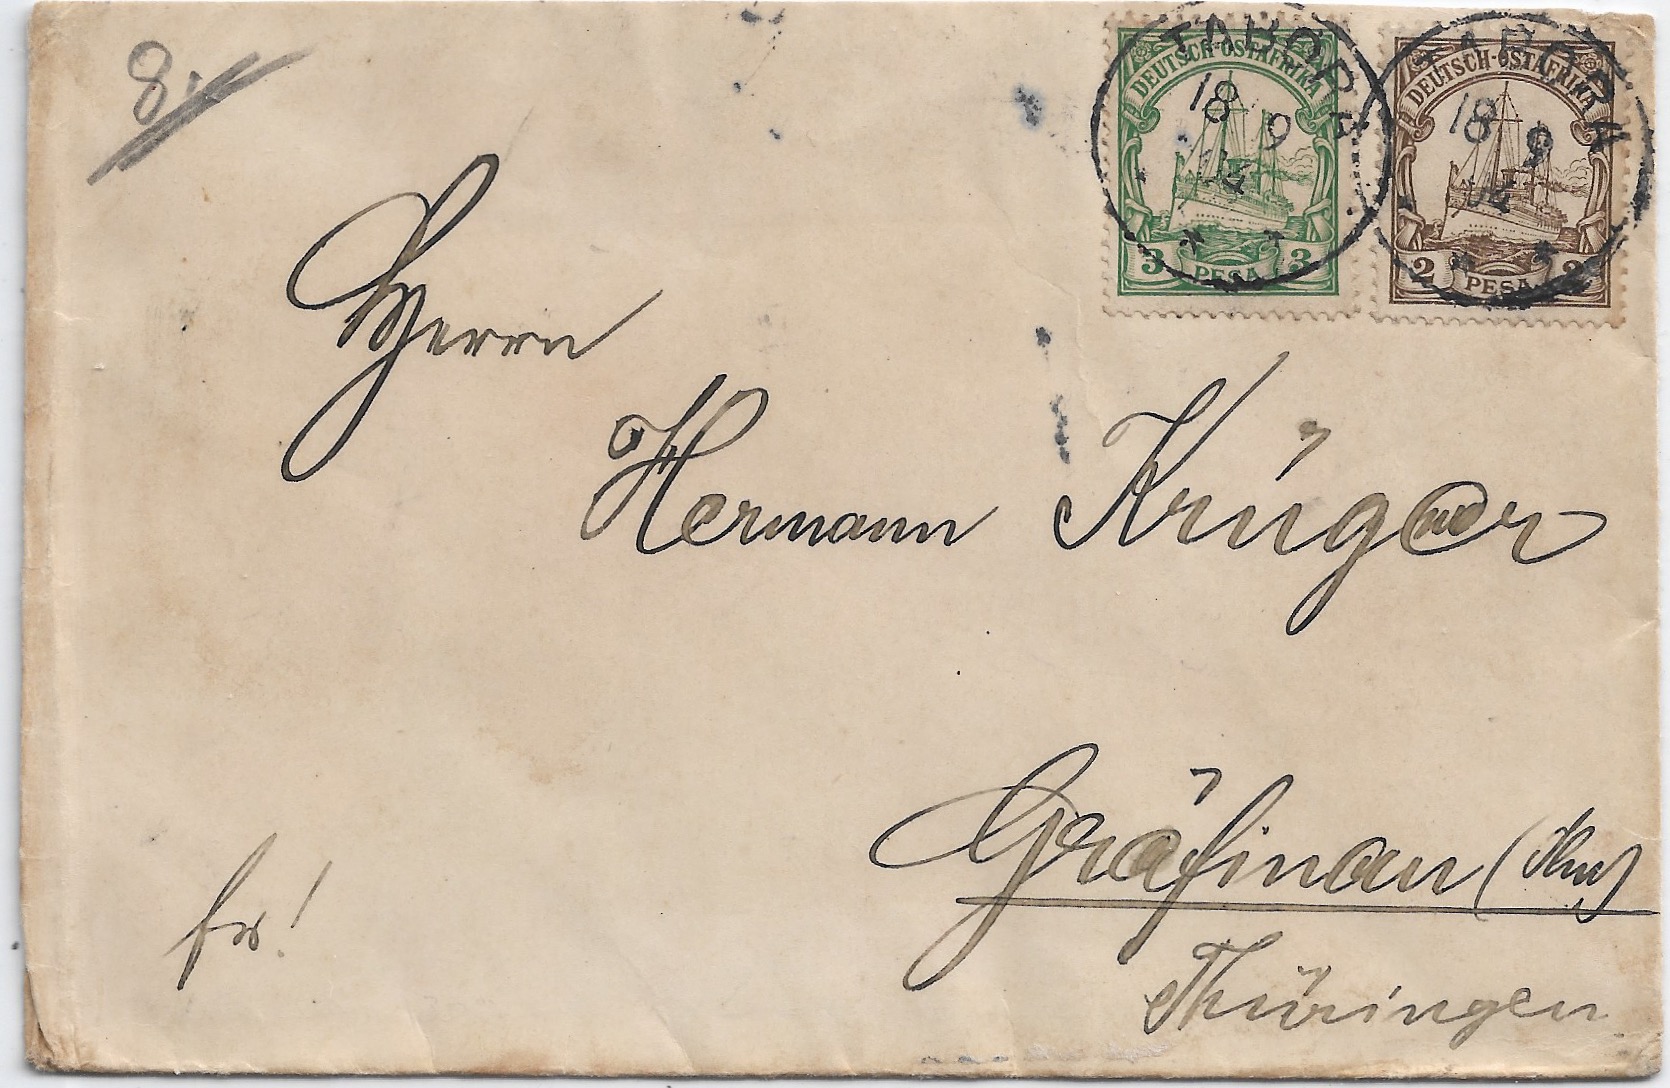 8.
TABORA
18 9
04
DEUTSCH-OSTAFRIKA
3 PESA 3
TABORA
18 9
04
DEUTSCH-OSTAFRIKA
2 PESA 2
Herrn
Hermann Krüger
Gräfinau (Ilm)
Thüringen
fr!